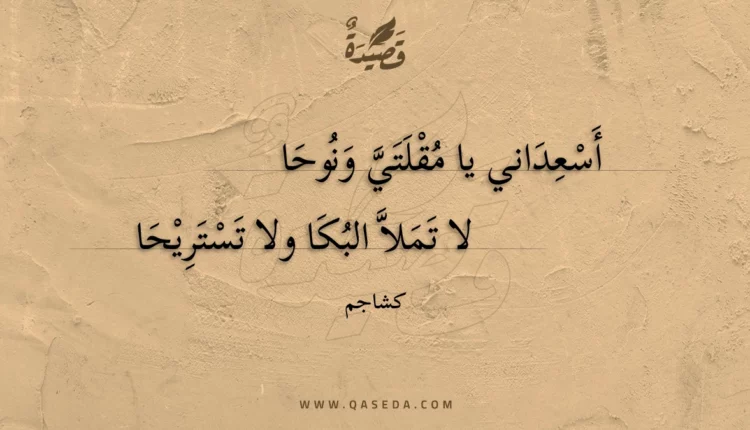 قَصِيْدَةٌ
أَسْعِدَاني يا مُقْلَتَيَّ وَنُوحَا
لا تَمَلاَّ البُكَا ولا تَسْتَرِيْحَا
كشاجم
WWW.QASEDA.COM